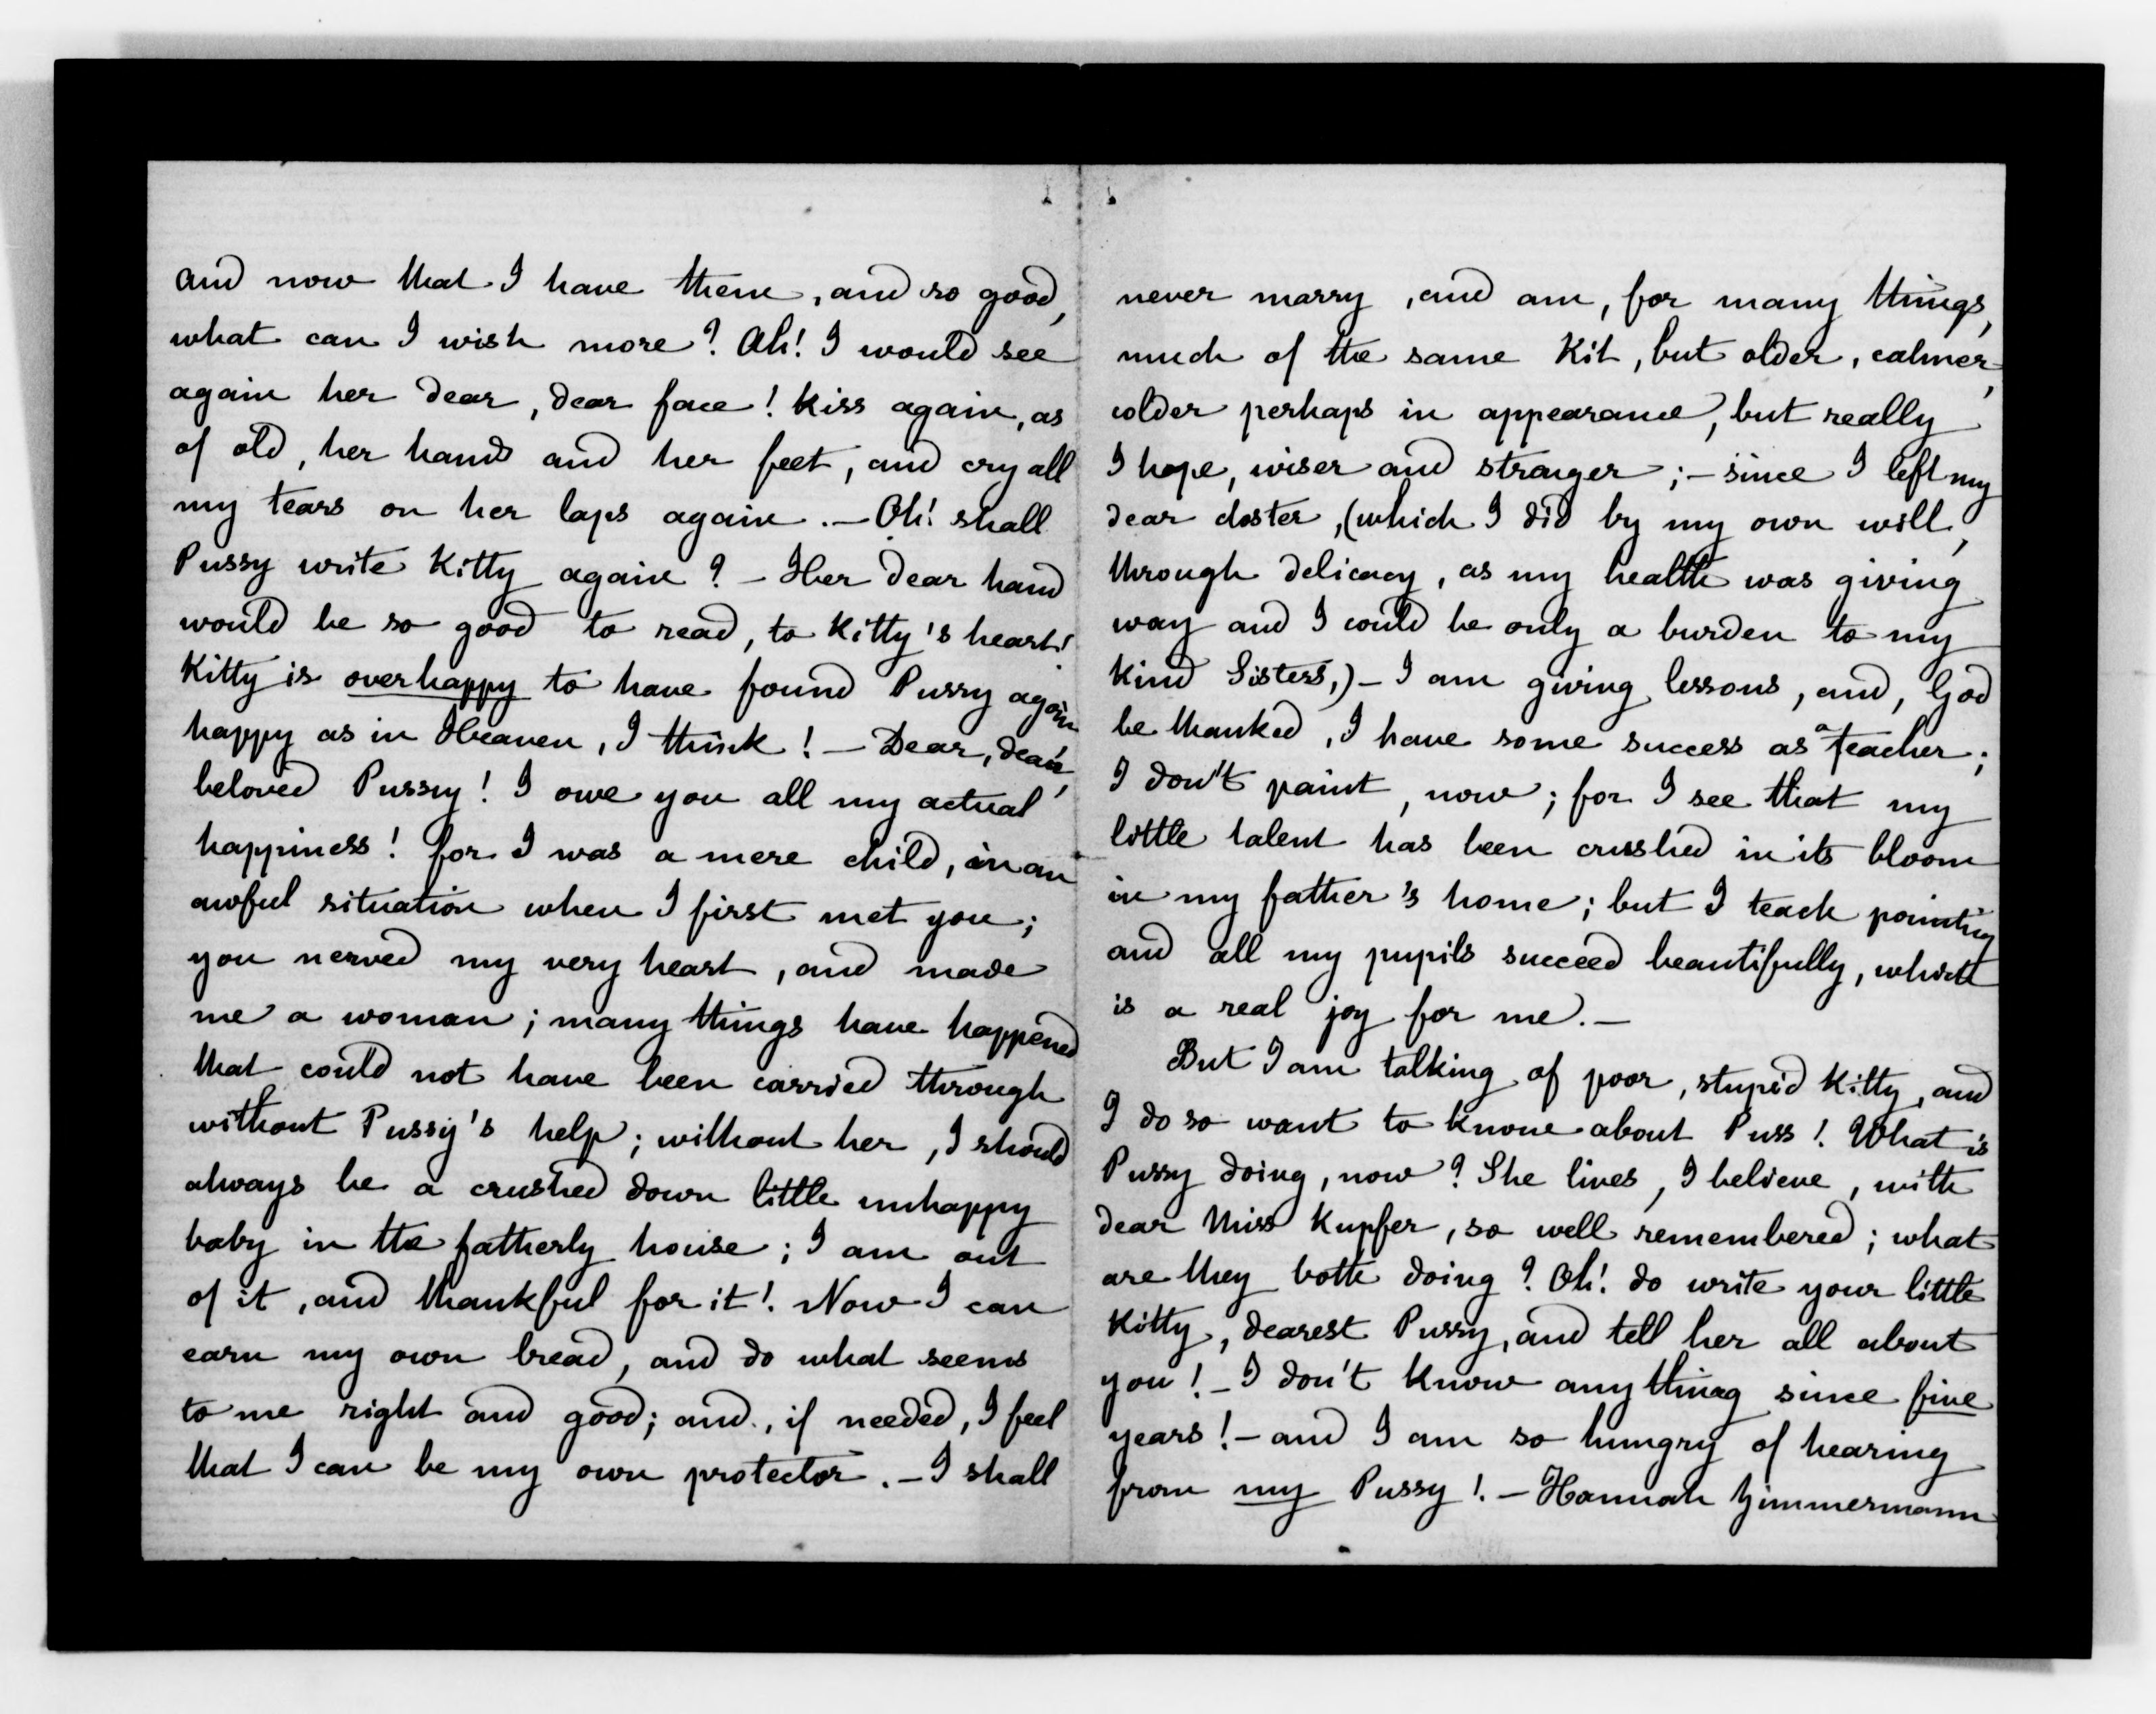 and now that I have them, and so good,
what can I wish more? Ah! I would see
again her dear, dear face! Kiss again, as
of old, her hands and her feet, and cry all
my tears on her laps again. — Oh! shall
Pussy write Kitty again? — Her dear hand
would be so good to read, to Kitty's heart!
Kitty is overhappy to have found Pussy again
happy as in Heaven, I think! — Dear, dear,
beloved Pussy! I owe you all my actual
happiness! for I was a mere child, in an
awful situation when I first met you;
you nerved my very heart, and made
me a woman; many things have happened
that could not have been carried through
without Pussy's help; without her, I should
always be a crushed down little unhappy
baby in the fatherly house; I am out
of it, and thankful for it! Now I can
earn my own bread, and do what seems
to me right and good; and, if needed, I feel
that I can be my own protector. — I shall
never marry, and am, for many things,
much of the same Kit, but older, calmer,
colder perhaps in appearance, but really
I hope, wiser and stronger; — since I left my
dear closter, (which I did by my own will,
through delicacy, as my health was giving
way and I could be only a burden to my
kind Sisters,) — I am giving lessons, and, God
be thanked, I have some success as a teacher;
I don't paint, now; for I see that my
little talent has been crushed in its bloom
in my father's home; but I teach painting
and all my pupils succeed beautifully, which
is a real joy for me. —
But I am talking of poor, stupid Kitty, and
I do so want to know about Puss! What is
Pussy doing, now? She lives, I believe, with
dear Miss Kupfer, so well remembered; what
are they both doing? Oh! do write your little
Kitty, dearest Pussy, and tell her all about
you! — I don't know anything since five
years! — and I am so hungry of hearing
from my Pussy! — Hannah Zimmermann